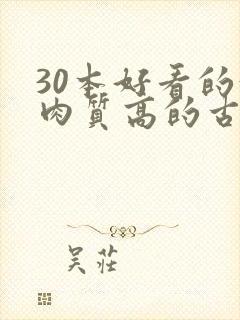 30本好看的
肉质高的古
吴莊